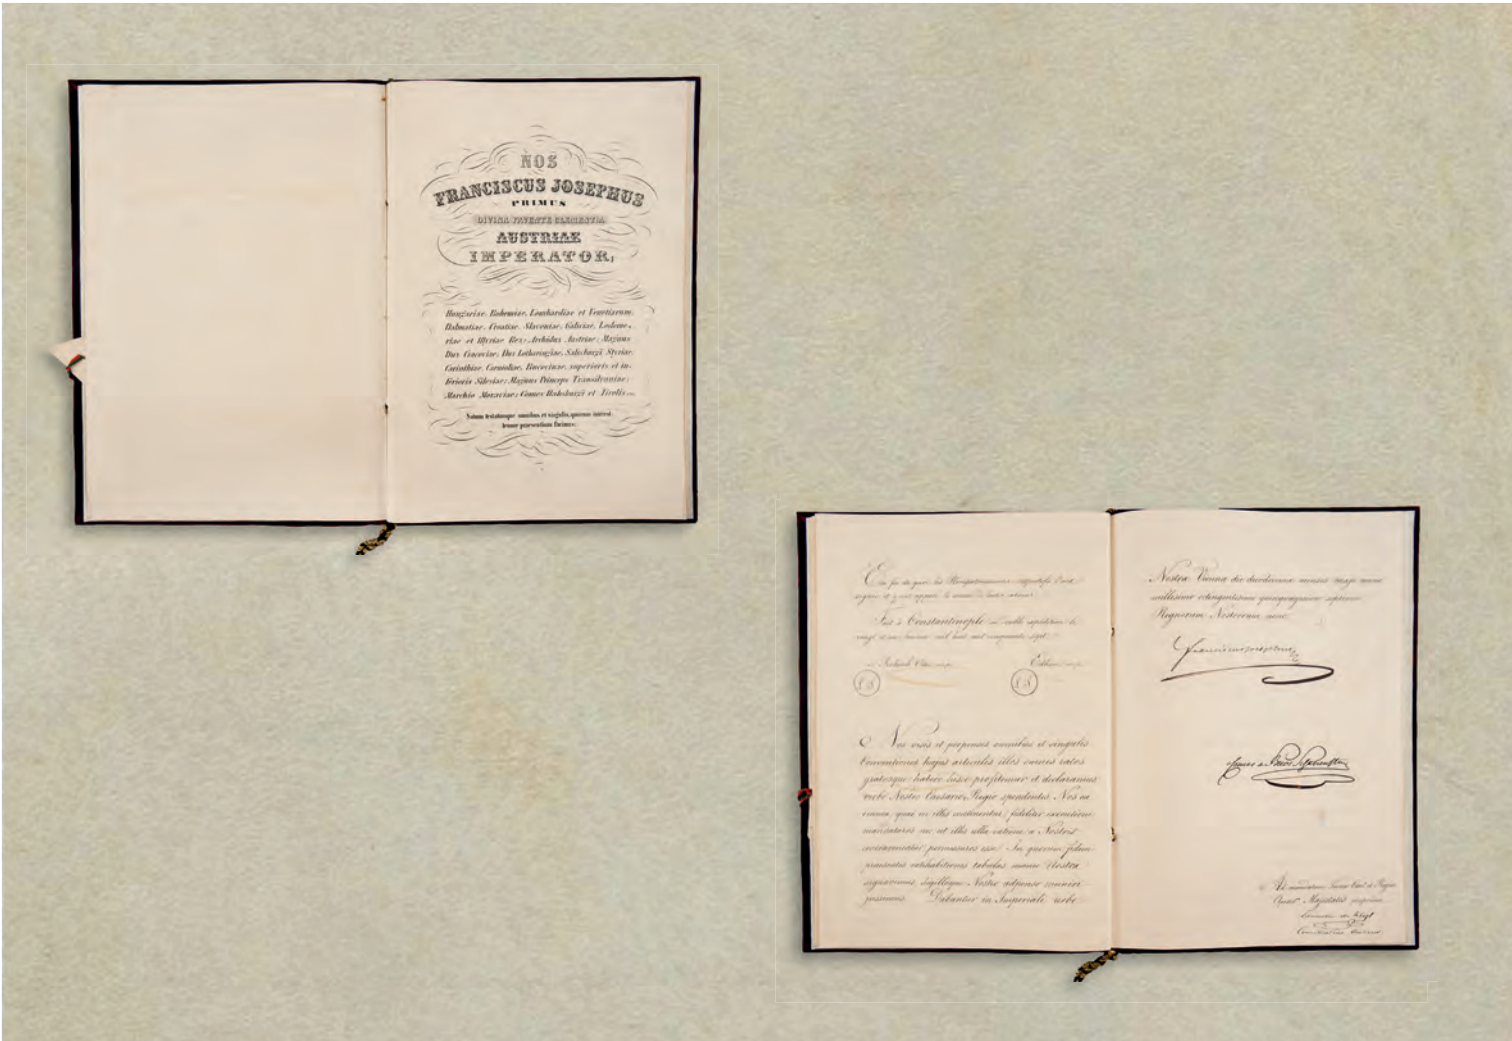 NOS
FRANCISCUS JOSEPHUS
PRIMUS
DIVINA FAVENTE CLEMENTIA
AUSTRIAE
IMPERATOR,
Hungariae, Bohemiae, Lombardiae et Venetiarum,
Dalmatiae, Croatiae, Slavoniae, Galiciae, Lodome-
riae et Illyriae Rex; Archidux Austriae; Magnus
Dux Cracoviae; Dux Lotharingiae, Salisburgi, Styriae,
Carinthiae, Carnioliae, Bucovinae, superioris et in-
ferioris Silesiae; Magnus Princeps Transilvaniae;
Marchio Moraviae; Comes Habsburgi et Tirolis
Notum testatumque omnibus et singulis, quorum interest,
tenore praesentium facimus:
En foi de quoi les Plénipotentiaires respectifs l'ont
signé et y ont apposé le sceau de leurs armes.
Fait à Constantinople en expédition le
vingt et un mil huit cent cinquante sept.
Edhem
L.S. L.S.
Nos visis et perpensis omnibus et singulis
Conventionis hujus articulis illos omnes ratos
gratosque habere hisce profitemur et declaramus
verbo Nostro Caesareo Regio spondentes Nos ea
omnia, quae in illis continentur, fideliter executioni
mandaturos nec ut illis ulla ratione a Nostris
contraveniatur permissuros esse. In quorum fidem
praesentes ratihabitionis tabulas manu Nostra
signavimus, sigilloque Nostro adpenso muniri
jussimus. Dabantur in Imperiali urbe
Nostra Vienna die duodecima mensis anno
millesimo octingentesimo quinquagesimo septimo
Regnorum Nostrorum nono.
Franciscus Josephus
Ad mandatum Sacrae Caes. et Regiae
Apost. Majestatis proprium